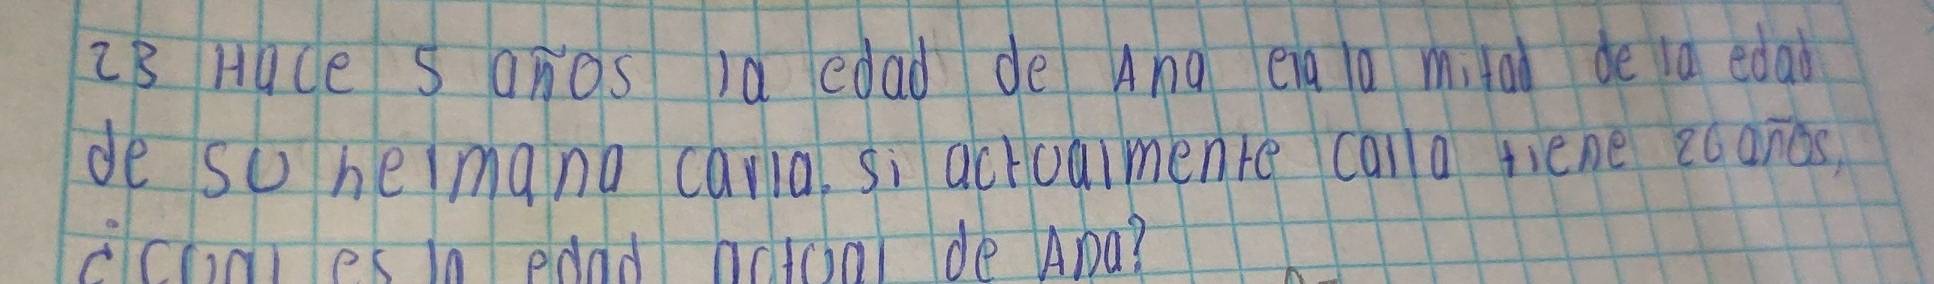 23 Hace 5 años la edad de Ana era la mitad de la edad
de su hermana carla. si actualmente carla tiene 26 años,
¿cual es la edad actual de Ana?